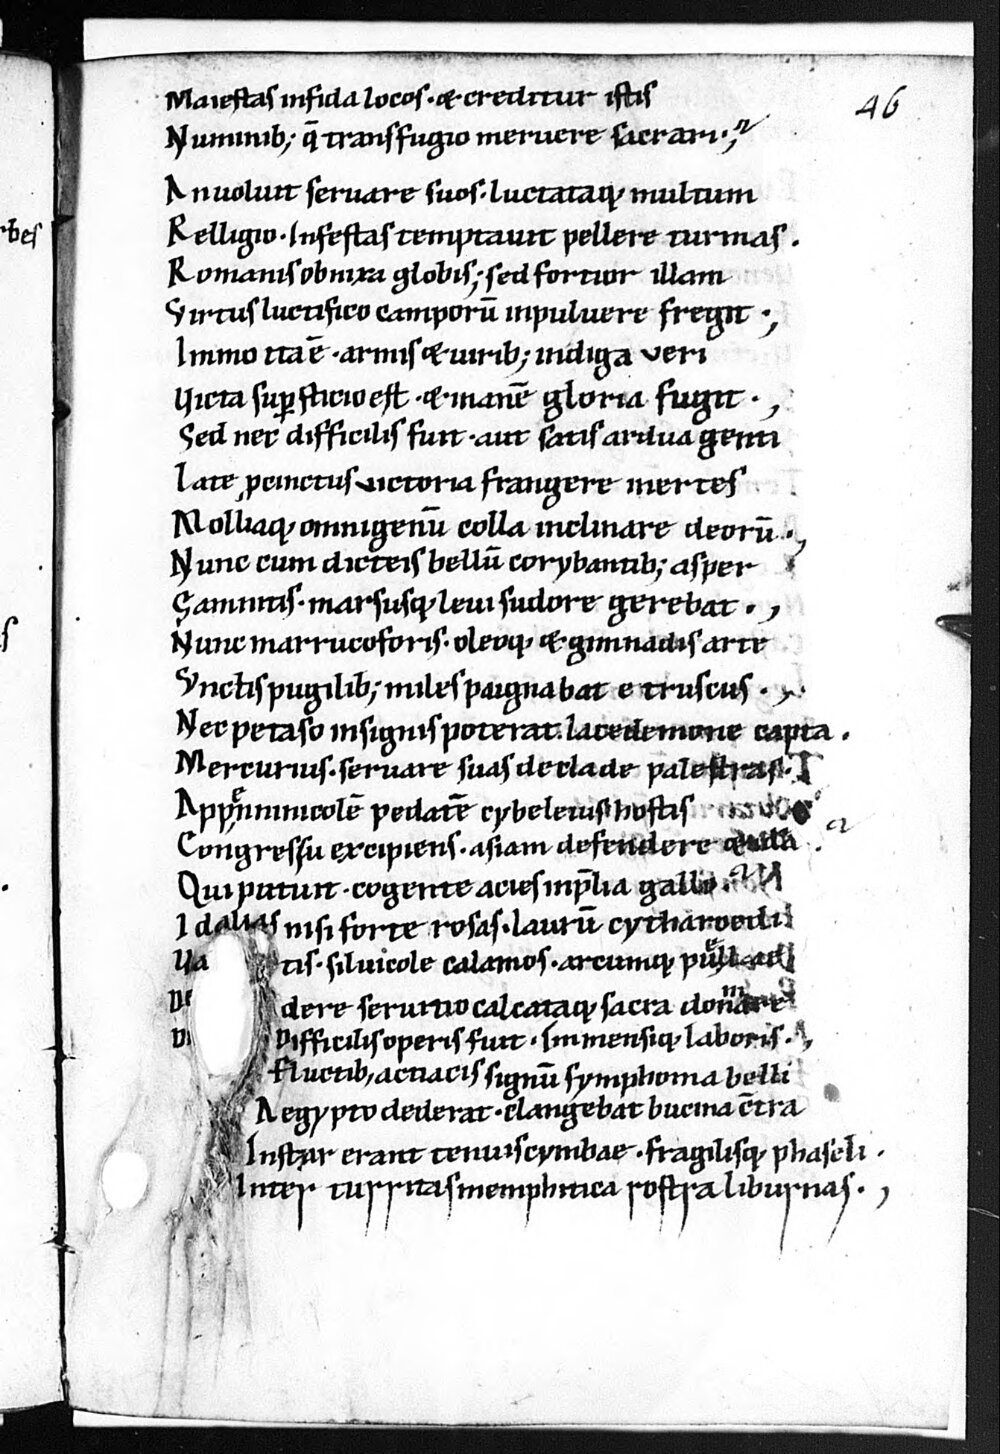 46
Maiestas infida locos · & creditur istis
Numinib; q̄ transfugio meruere sacrari ·;
An uoluit seruare suos · luctataq; multum
Relligio · Infestas temptauit pellere turmas .
Romanis obnixa globis; sed fortior illam
Virtus luctifico camporū inpuluere fregit ·,
Immo ita ē · armis & uirib; indiga veri
Uicta suꝑsticio est · & inanē gloria fugit ·,
Sed nec difficilis fuit · aut satis ardua genti
Late pcinctus victoria frangere inertes
Molliaq; omnigenū colla inclinare deorū ·,
Nunc cum dicteis bellū corybantib; asper
Samnitis · marsusq; leui sudore gerebat ·,
Nunc marrucoforis · oleoq; & gimnadis arte
Vnctis pugilib; miles paignabat etruscus ·,
Nec petaso insignis poterat lacedemone capta .
Mercurius · seruare suas de clade palestras.
Appēninnicolē pedatē cybeleius hostis
Congressu excipiens · asiam defendere & ida
Qui potuit · cogente acies inp̄lia gallo ·
Idalias nisi forte rosas · laurū cytharoedi
Ua tis · siluicole calamos · arcumq; puellae
De dere seruitio calcataq; sacra domare
Di Difficilis operis fuit · Immensiq; laboris ·,
Fluctib; actiacis signū symphonia belli
Aegypto dederat · clangebat bucina c̄tra
Instar erant tenuis cymbae · fragilisq; phaseli ·
Inter turritas memphitica rostra liburnas ·,
rbes
s